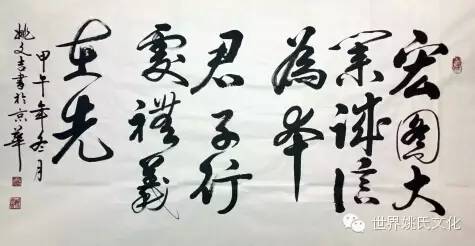 宏图大
業诚信
為本
君子行
处禮義
在先
甲午年冬月
姚文吉書於京華
世界姚氏文化